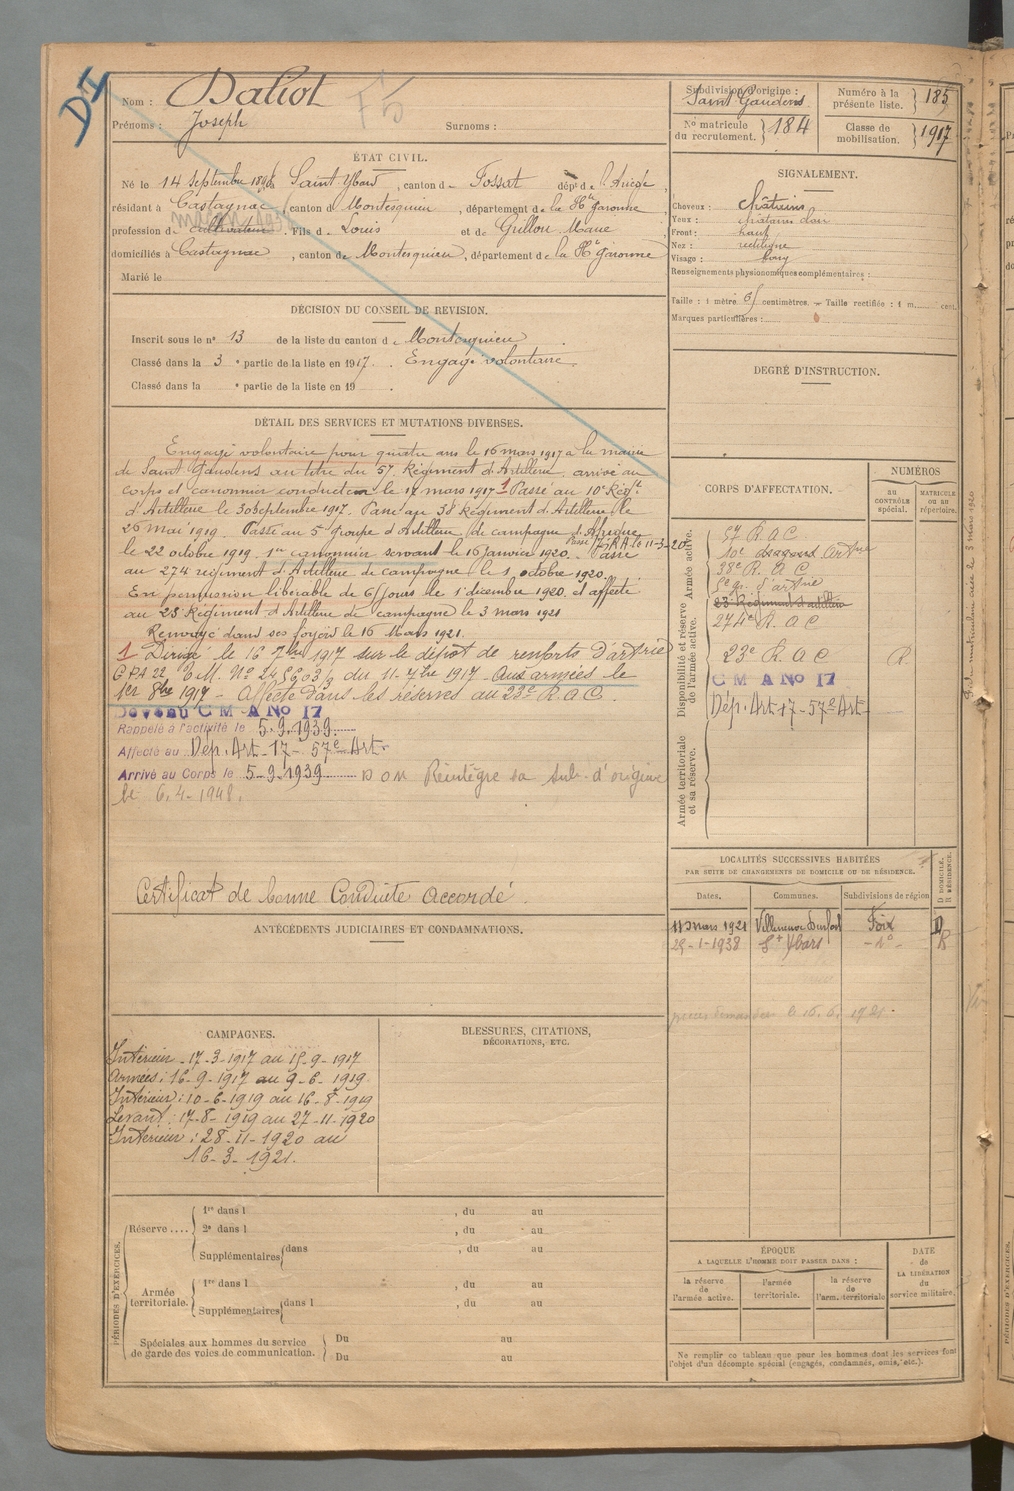 DI
Nom : Daliot
Prénoms : Joseph Surnoms :
Subdivision d'origine : Saint Gaudens
Numéro à la présente liste. } 185
Nº matricule du recrutement. } 184
Classe de mobilisation. } 1917
ÉTAT CIVIL.
Né le 14 Septembre à Saint Ybars, canton de Fossat dépt de l'Ariège
résidant à Castagnac, canton de Montesquieu, département de la Hte Garonne
profession de cultivateur. Fils de Louis et de Grillou Marie
domiciliés à Castagnac, canton de Montesquieu, département de la Hte Garonne
Marié le
SIGNALEMENT.
Cheveux : châtains
Yeux : châtain clair
Front : haut
Nez : rectiligne
Visage : long
Renseignements physionomiques complémentaires :
Taille : 1 mètre 65 centimètres. — Taille rectifiée : 1 m. cent.
Marques particulières :
DÉCISION DU CONSEIL DE REVISION.
Inscrit sous le nº 13 de la liste du canton de Montesquieu
Classé dans la 3e partie de la liste en 1917. Engagé volontaire.
Classé dans la e partie de la liste en 19 .
DEGRÉ D'INSTRUCTION.
DÉTAIL DES SERVICES ET MUTATIONS DIVERSES.
Engagé volontaire pour quatre ans le 16 mars 1917 à la mairie
de Saint Gaudens au titre du 57e Régiment d'Artillerie. arrivé au
corps et canonnier conducteur le 17 mars 1917. 1 Passé au 10e Régt
d'Artillerie le 30 septembre 1917. Passé au 38e Régiment d'Artillerie le
26 mai 1919. Passé au 5e groupe d'Artillerie de campagne d'Afrique
le 22 octobre 1919. 1er canonnier servant le 16 Janvier 1920. Passé
au 274e régiment d'Artillerie de campagne le 1 octobre 1920.
En permission libérable de 61 jours le 1er décembre 1920 et affecté
au 23e Régiment d'Artillerie de campagne le 3 mars 1921
Renvoyé dans ses foyers le 16 Mars 1921.
1 Dirigé le 16 7bre 1917 sur le dépôt de renforts d'artrie
du 11-7bre 1917 - Aux armées le
1er 8bre 1917 - Affecté dans les réserves au 23e R.A.C.
Devenu C M A No 17
Rappelé à l'activité le 5-9-1939
Affecté au Dép. Art-17 - 57e Art.
Arrivé au Corps le 5-9-1939 DOM Réintègre sa sub. d'origine
le 6.4-1948.
Certificat de bonne Conduite accordé.
CORPS D'AFFECTATION.
NUMÉROS
au CONTRÔLE spécial.
MATRICULE ou au répertoire.
Armée active.
57 R.A.C
10e Artrie
38e R.A.C
5e gr. d'artrie
23e Régiment d'artillerie
274e R.A.C
Disponibilité et réserve de l'armée active.
23e R.A.C R.
C M A No 17
Dép. Art-17-57e Art-
Armée territoriale et sa réserve.
LOCALITÉS SUCCESSIVES HABITÉES
PAR SUITE DE CHANGEMENTS DE DOMICILE OU DE RÉSIDENCE.
Dates. Communes. Subdivisions de région D DOMICILE. R RÉSIDENCE.
mars 1921 Villeneuve Durfort Foix D
25-1-1938 St Ybars -do- R
ANTÉCÉDENTS JUDICIAIRES ET CONDAMNATIONS.
CAMPAGNES.
Intérieur - 17-3-1917 au 15-9-1917
Armées : 16-9-1917 au 9-6-1919
Intérieur : 10-6-1919 au 16-8-1919
Levant : 17-8-1919 au 27-11-1920
Intérieur : 28-11-1920 au
16-3-1921.
BLESSURES, CITATIONS,
DÉCORATIONS, ETC.
PÉRIODES D'EXERCICES.
Réserve ....
1re dans l , du au
2e dans l , du au
Supplémentaires dans , du au
Armée territoriale.
1re dans l , du au
Supplémentaires dans l , du au
Spéciales aux hommes du service
de garde des voies de communication.
Du au
Du au
ÉPOQUE
A LAQUELLE L'HOMME DOIT PASSER DANS :
la réserve de l'armée active.
l'armée territoriale.
la réserve de l'arm. territoriale
DATE de LA LIBÉRATION du service militaire.
Ne remplir ce tableau que pour les hommes dont les services font
l'objet d'un décompte spécial (engagés, condamnés, omis, etc.).